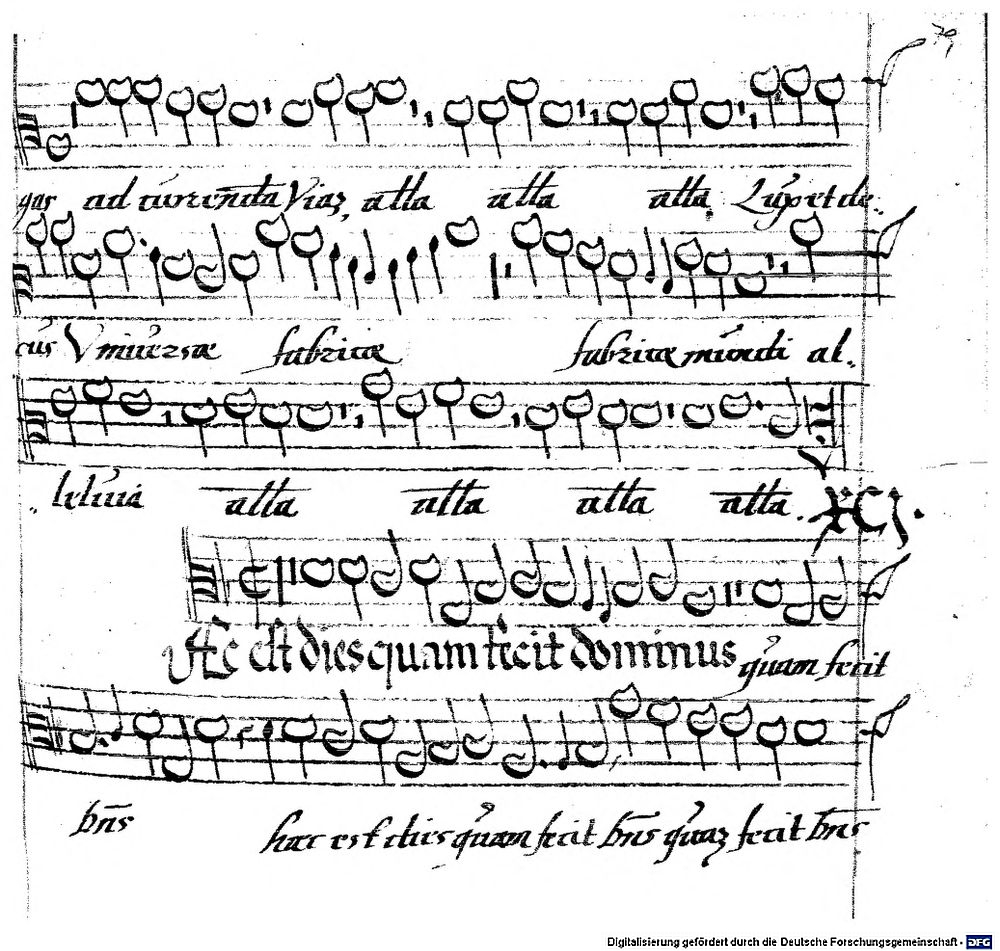 79
gas ad currenda Viaz, alla alla alla. Lux et de..
cus Vniuersæ fabricæ fabricæ mundi al..
. leluia alla alla alla alla. XCI.
Æc est dies quam fecit dominus quam fecit
dn̄s hæc est dies quam fecit dn̄s quaz fecit dn̄s
Digitalisierung gefördert durch die Deutsche Forschungsgemeinschaft - DFG